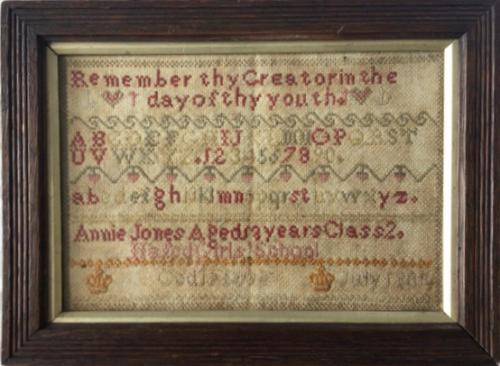 Remember thy Creator in the
day of thy youth.
ABCDEFGHIJKLMNOPQRST
UVWXYZ.1234567890.
abcdefghijklmnopqrstuvwxyz.
Annie Jones Aged 13 years Class 2.
Girls School
July